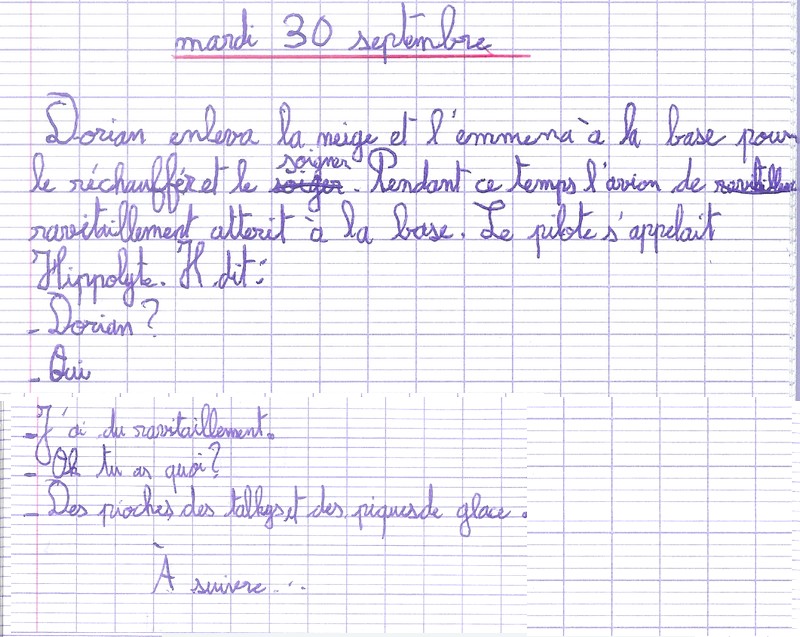 mardi 30 septembre
Dorian enleva la neige et l'emmena à la base pour
le réchauffér et le soigner. Pendant ce temps l'avion de
ravitaillement atterit à la base. Le pilote s'appelait
Hippolyte. Il dit:
- Dorian ?
- Oui
- J'ai du ravitaillement.
- Ok tu as quoi ?
- Des pioches, des talkys, et des piques de glace.
À suivre...